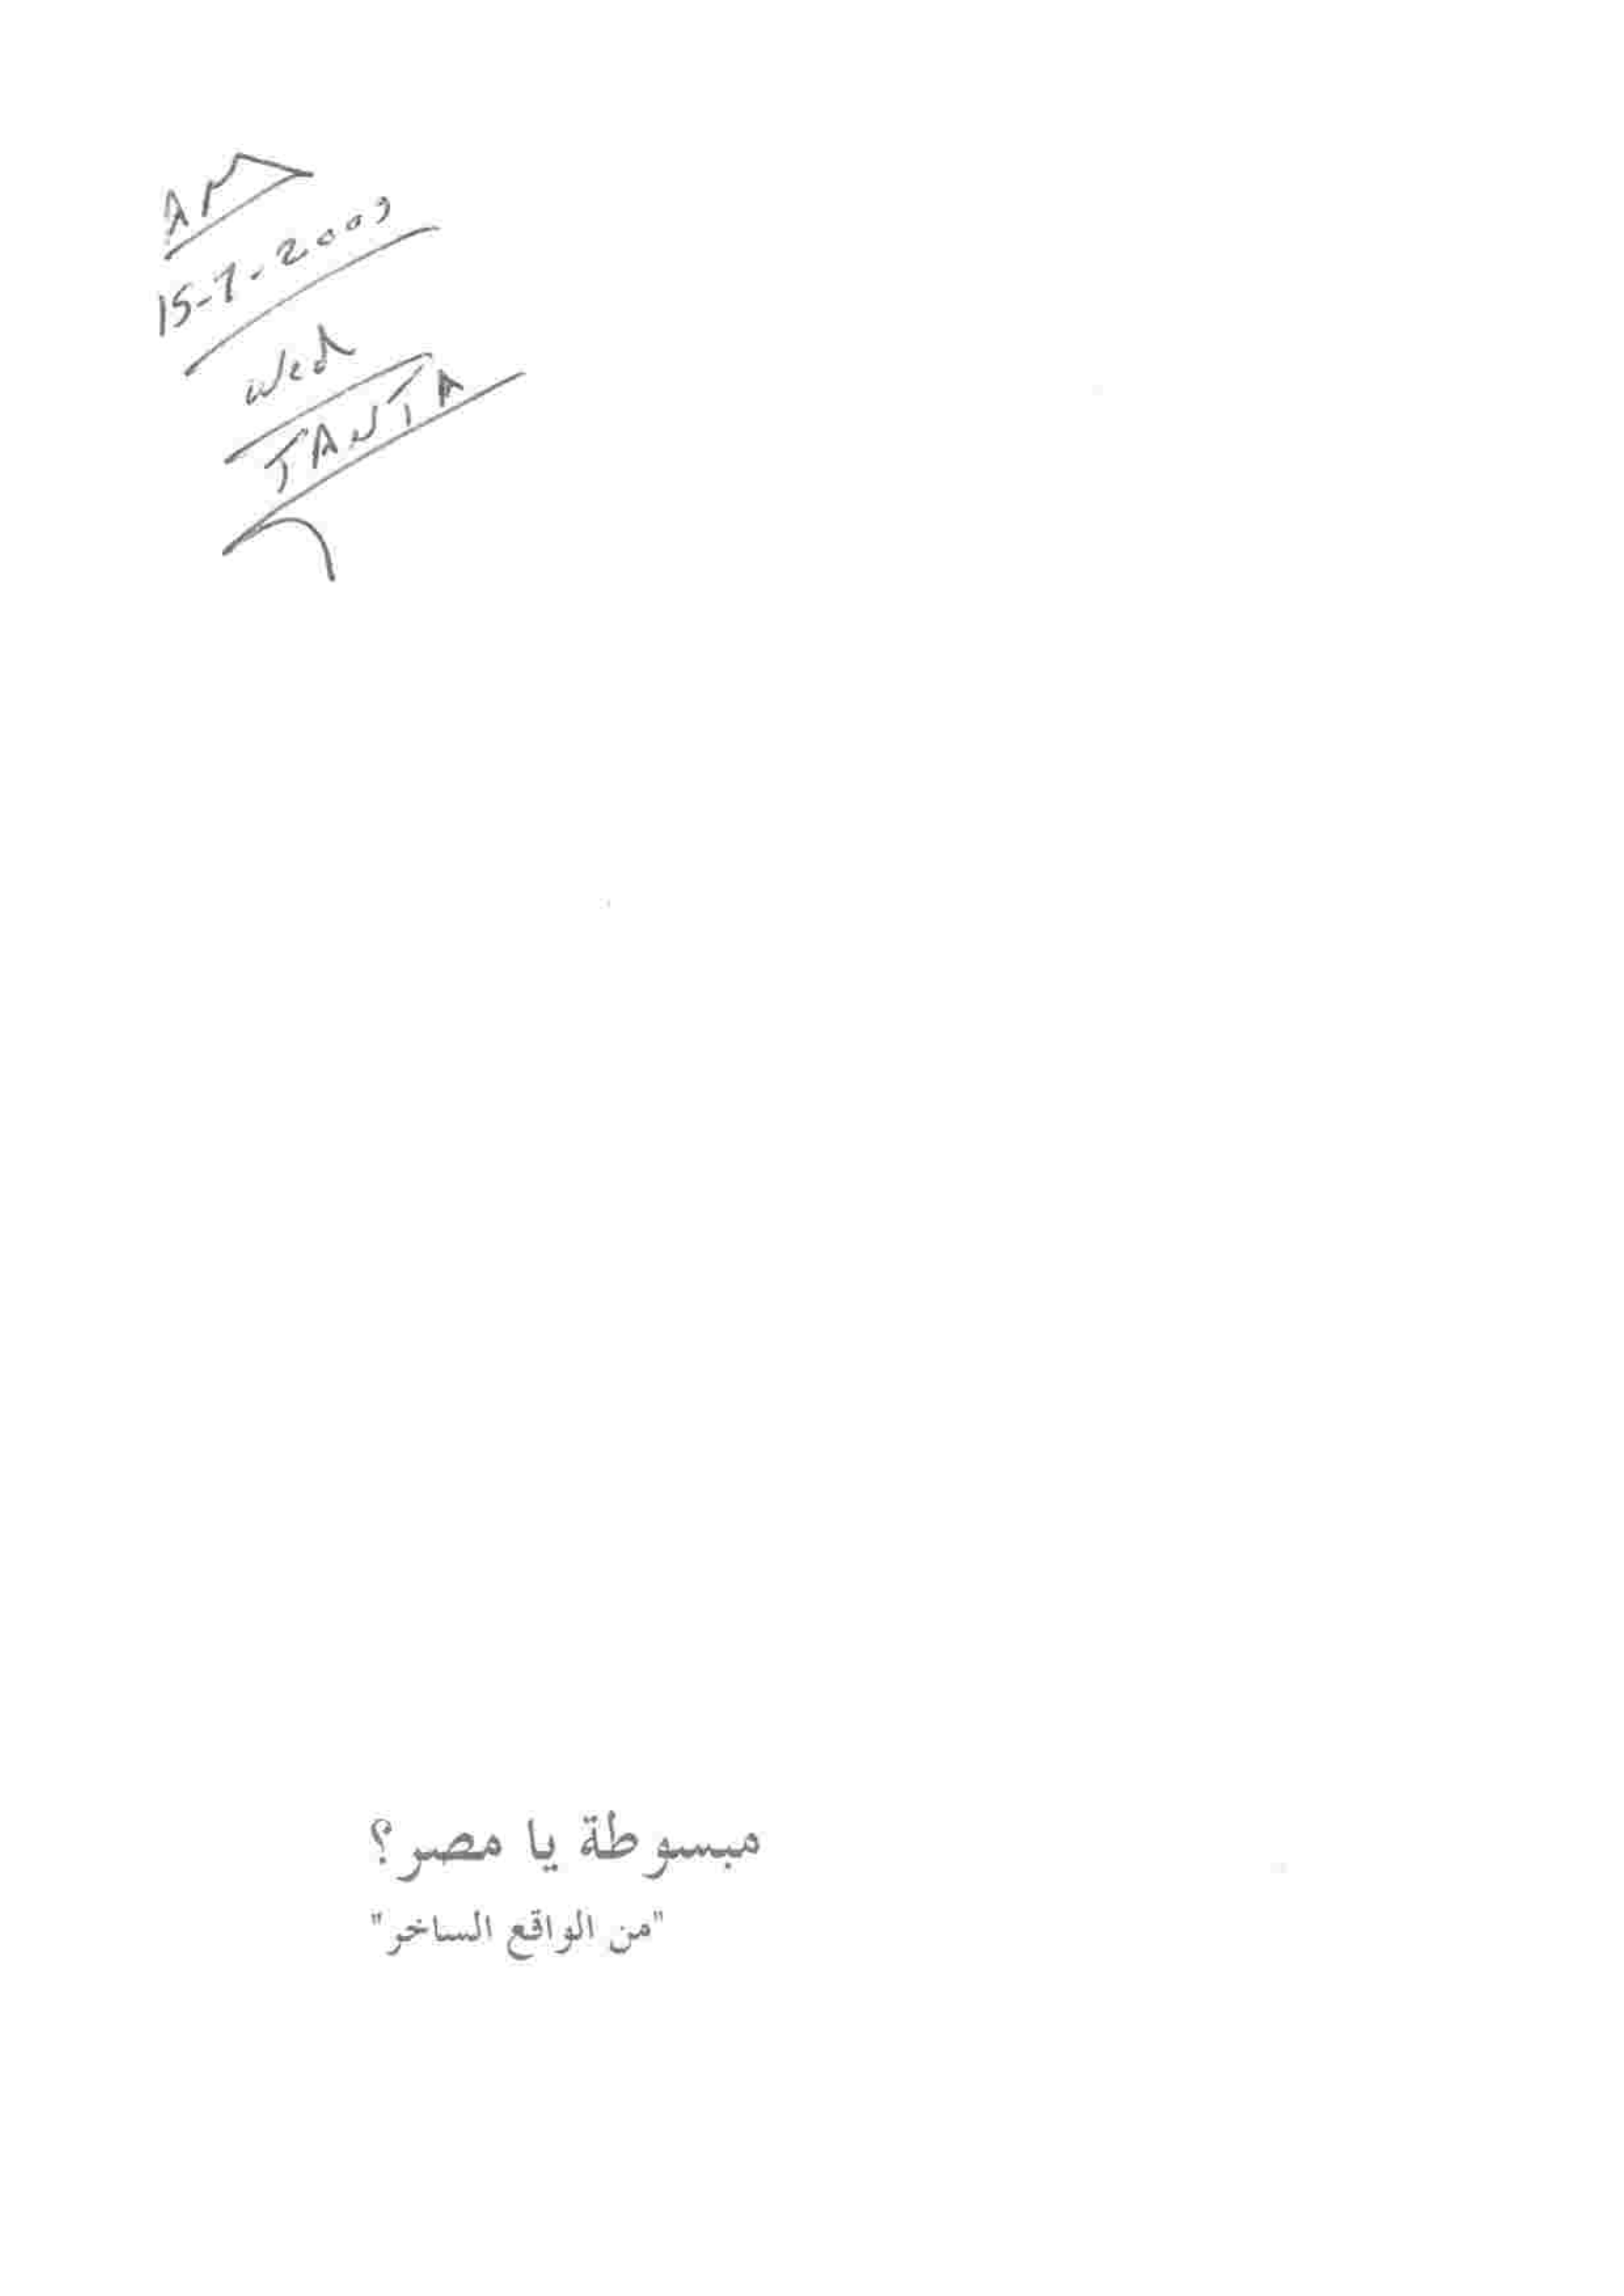 15-7-2009
Wed
TANTA
مبسوطة يا مصر؟
"من الواقع الساخر"